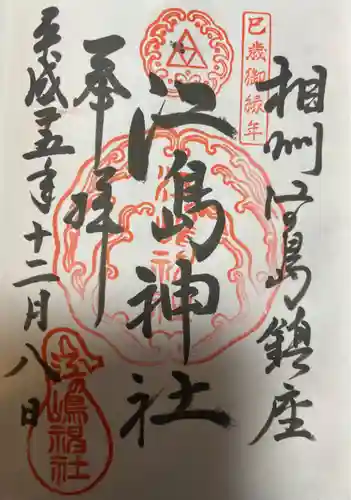 巳歳御縁年
相州江島鎮座
江島神社
奉拝
平成二十五年十二月八日
江嶋神社